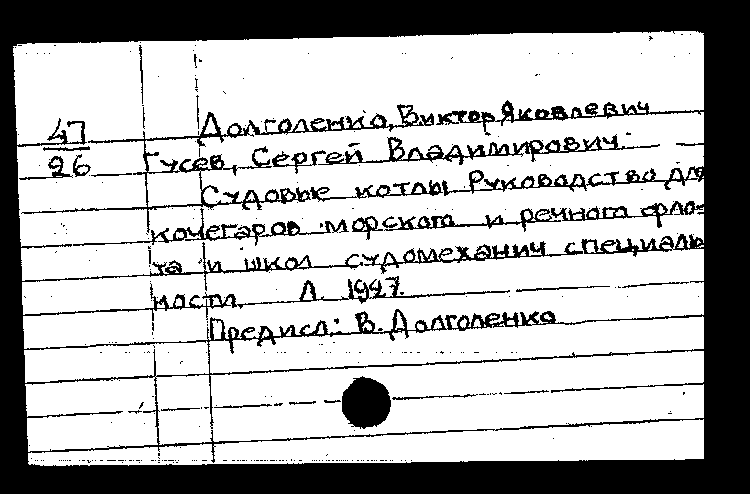 47 Долголенко, Виктор Яковлевич
26 Гусев, Сергей Владимирович.
Судовые котлы Руководство для
кочегаров морского и речного фло-
та и школ судомеханич специаль
ности. Л. 1927.
Предисл.: В. Долголенко